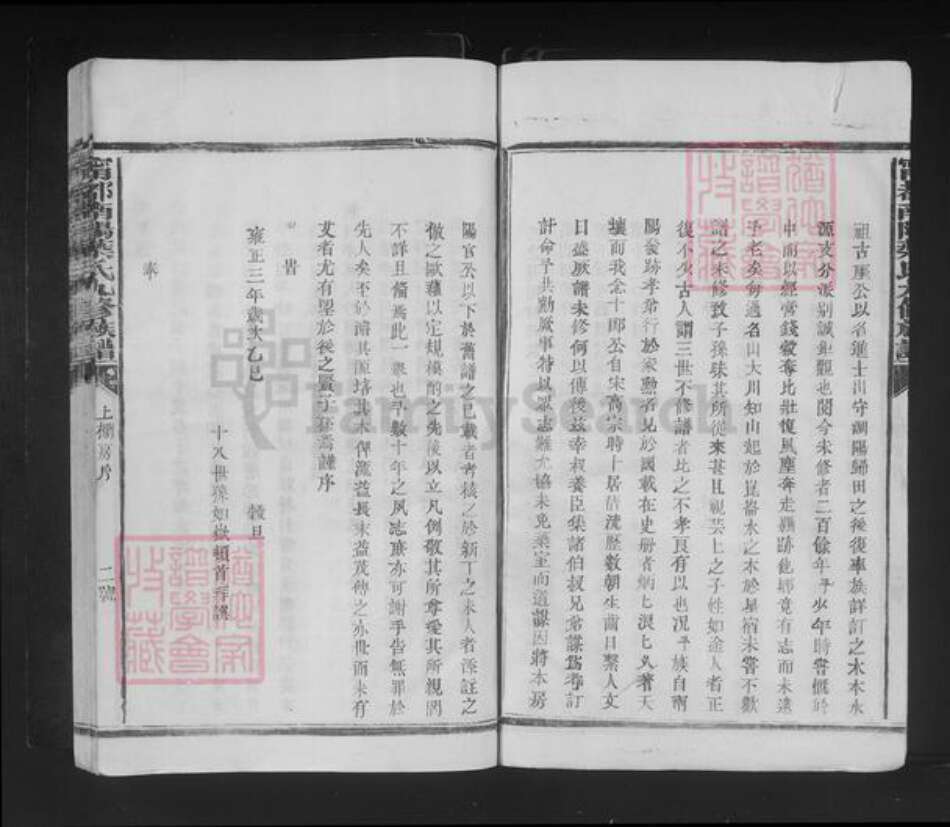 祖古厓公以名進士出守潮陽歸田之後復率族詳訂之木本水
源支分派別誠鉅觀也閱今未修者二百餘年予少年時嘗慨於
中而以經營錢穀奔比壯復風塵奔走羈跡他鄉竟有志而未逮
予老矣每過名山大川知山起於崑崙水之本於星宿未嘗不歎
譜之未修致子孫昧其所從來甚且視芸上之子姓如途人者正
復不少古人謂三世不修譜者比之不孝良有以也况予族自南
陽發跡孝弟行於家勳名見於國載在史册者炳炳溟溟久著天
壤而我念十郎公自宋高宗時卜居信茂歷數朝生齒日繁人文
日盛厥譜未修何以傳後兹幸叔養臣集諸伯叔兄弟謀爲考訂
計命予共勷厥事特以眾志難尤協未免築室而道謀因將本房
陽官公以下於舊譜之已載者考核之於新丁之未入者添註之
倣之歐蘇以定規模酌之先後以立凡例敬其所尊愛其所親罔
不詳且備焉此一舉也予數十年之夙志庶亦可謝乎告無罪於
先人矣至於濬其源培其本俾瀰益長末益茂傳之亦世而未有
艾者尤有望於後之賢子孫焉謹序
旹
雍正三年歲次乙巳 穀旦
十八世孫如嶽頓首拜譔
奉
上攔房序
二號
甯都南陽葉氏九修族譜